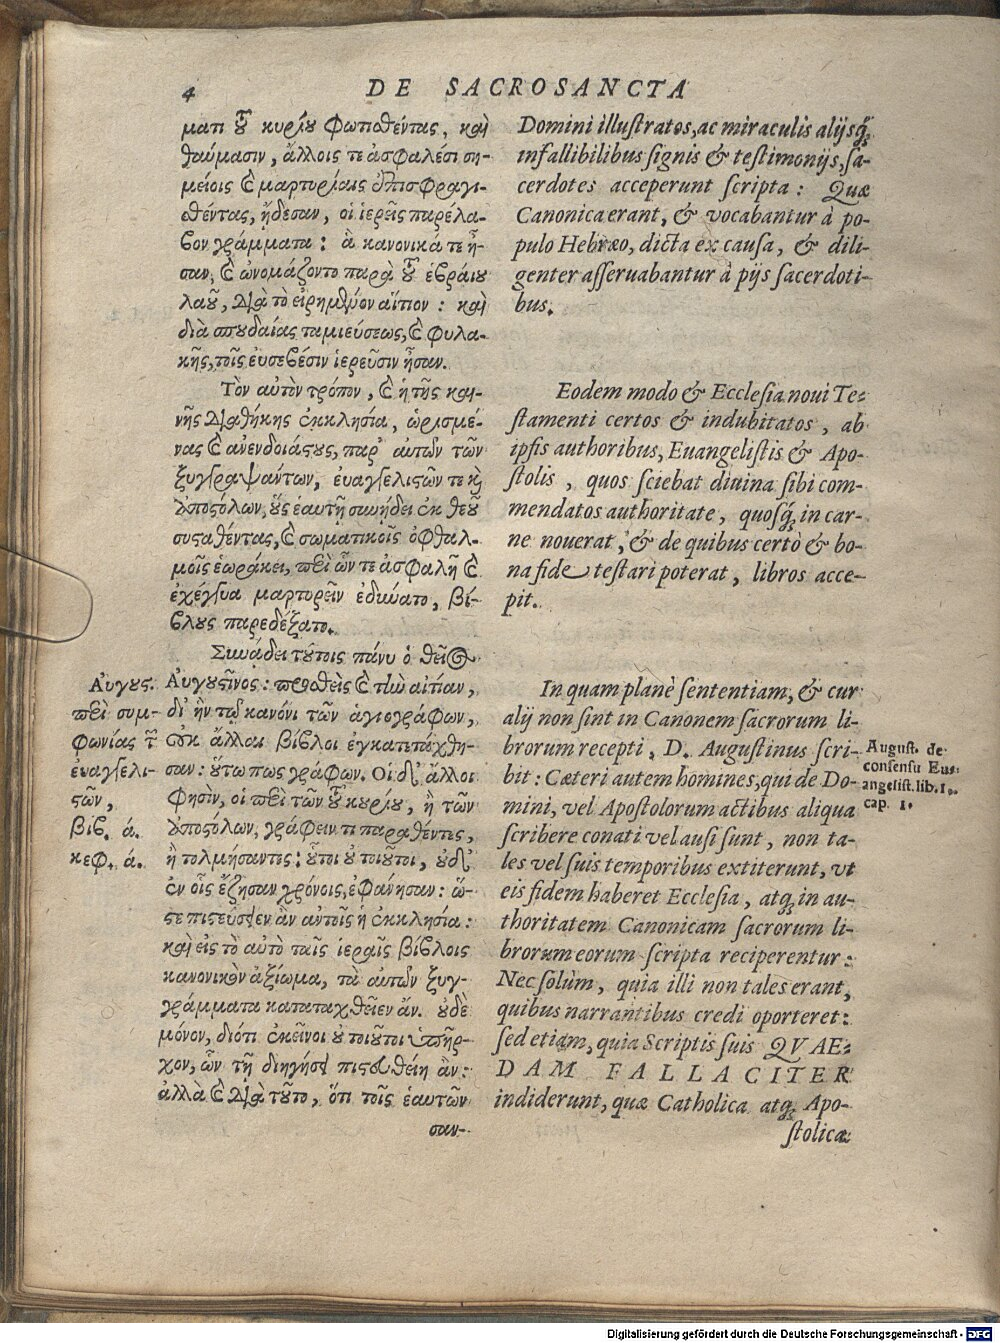 4
DE SACROSANCTA
ματι τοῦ κυρίου φωτισθέντας, καὶ
θαύμασιν, ἄλλοις τε ἀσφαλέσι ση-
μείοις καὶ μαρτυρίαις ἐπισφραγι-
σθέντας, ᾔδεσαν, οἱ ἱερεῖς παρέλα-
βον γράμματα: ἃ κανονικά τε ἦ-
σαν, καὶ ὠνομάζοντο παρὰ τοῦ ἑβραίου
λαοῦ, διὰ τὸ εἰρημένον αἴτιον: καὶ
διὰ σπουδαίας ταμιεύσεως, καὶ φυλα-
κῆς, τοῖς εὐσεβέσιν ἱερεῦσιν ἦσαν.
Τὸν αὐτὸν τρόπον, καὶ ἡ τῆς και-
νῆς διαθήκης ἐκκλησία, ὡρισμέ-
νας καὶ ἀνενδοιάστους, παρ' αὐτῶν τῶν
ξυγγραψάντων, εὐαγγελιστῶν τε καὶ
ἀποστόλων, οὓς ἑαυτῇ συνῄδει ἐκ θεοῦ
συσταθέντας, καὶ σωματικοῖς ὀφθαλ-
μοῖς ἑωράκει, περὶ ὧν τε ἀσφαλῆ καὶ
ἐχέγγυα μαρτυρεῖν ἐδύνατο, βί-
βλους παρεδέξατο.
Συνᾴδει τούτοις πάνυ ὁ θεῖος
Αὐγουστῖνος: προσθεὶς καὶ τὴν αἰτίαν,
δι' ἣν τῷ κανόνι τῶν ἁγιογράφων,
οὐκ ἄλλαι βίβλοι ἐγκατετάχθη-
σαν: οὕτω πως γράφων. Οἱ δ' ἄλλοι
φησὶν, οἱ περὶ τῶν τοῦ κυρίου, ἢ τῶν
ἀποστόλων, γράφειν τι παραθέντες,
ἢ τολμήσαντες: οὗτοι οὐ τοιοῦτοι, οὐδ'
ἐν οἷς ἔζησαν χρόνοις, ἐφάνησαν: ὥ-
στε πιστεῦσεν ἂν αὐτοῖς ἡ ἐκκλησία:
καὶ εἰς τὸ αὐτὸ ταῖς ἱεραῖς βίβλοις
κανονικὸν ἀξίωμα, τὰ αὐτῶν ξυγ-
γράμματα καταταχθεῖεν ἄν. οὐδὲ
μόνον, διότι ἐκεῖνοι οὐ τοιοῦτοι ὑπῆρ-
χον, ὧν τῇ διηγήσει πιστευθείη ἂν:
ἀλλὰ καὶ διὰ τοῦτο, ὅτι τοῖς ἑαυτῶν
συν-
Αὐγους.
περὶ συμ-
φωνίας τῶν
εὐαγγελι-
στῶν,
βιβ. ά.
κεφ. ά.
Domini illustratos, ac miraculis alijsq́;
infallibilibus signis & testimonijs, sa-
cerdotes acceperunt scripta: Quæ
Canonica erant, & vocabantur à po-
pulo Hebræo, dicta ex causa, & dili-
genter asseruabantur à pijs sacerdoti-
bus.
Eodem modo & Ecclesia noui Te-
stamenti certos & indubitatos, ab
ipsis authoribus, Euangelistis & Apo-
stolis, quos sciebat diuina sibi com-
mendatos authoritate, quosq́; in car-
ne nouerat, & de quibus certò & bo-
na fide testari poterat, libros acce-
pit.
In quam planè sententiam, & cur
alij non sint in Canonem sacrorum li-
brorum recepti, D. Augustinus scri-
bit: Cæteri autem homines, qui de Do-
mini, vel Apostolorum actibus aliqua
scribere conati vel ausi sunt, non ta-
les vel suis temporibus extiterunt, vt
eis fidem haberet Ecclesia, atq; in au-
thoritatem Canonicam sacrorum li-
brorum eorum scripta reciperentur:
Nec solùm, quia illi non tales erant,
quibus narrantibus credi oporteret:
sed etiam, quia Scriptis suis QVAE-
DAM FALLACITER
indiderunt, quæ Catholica atq; Apo-
stolicæ
August. de
consensu Eu-
angelist. lib. 1.
cap. 1.
Digitalisierung gefördert durch die Deutsche Forschungsgemeinschaft - DFG